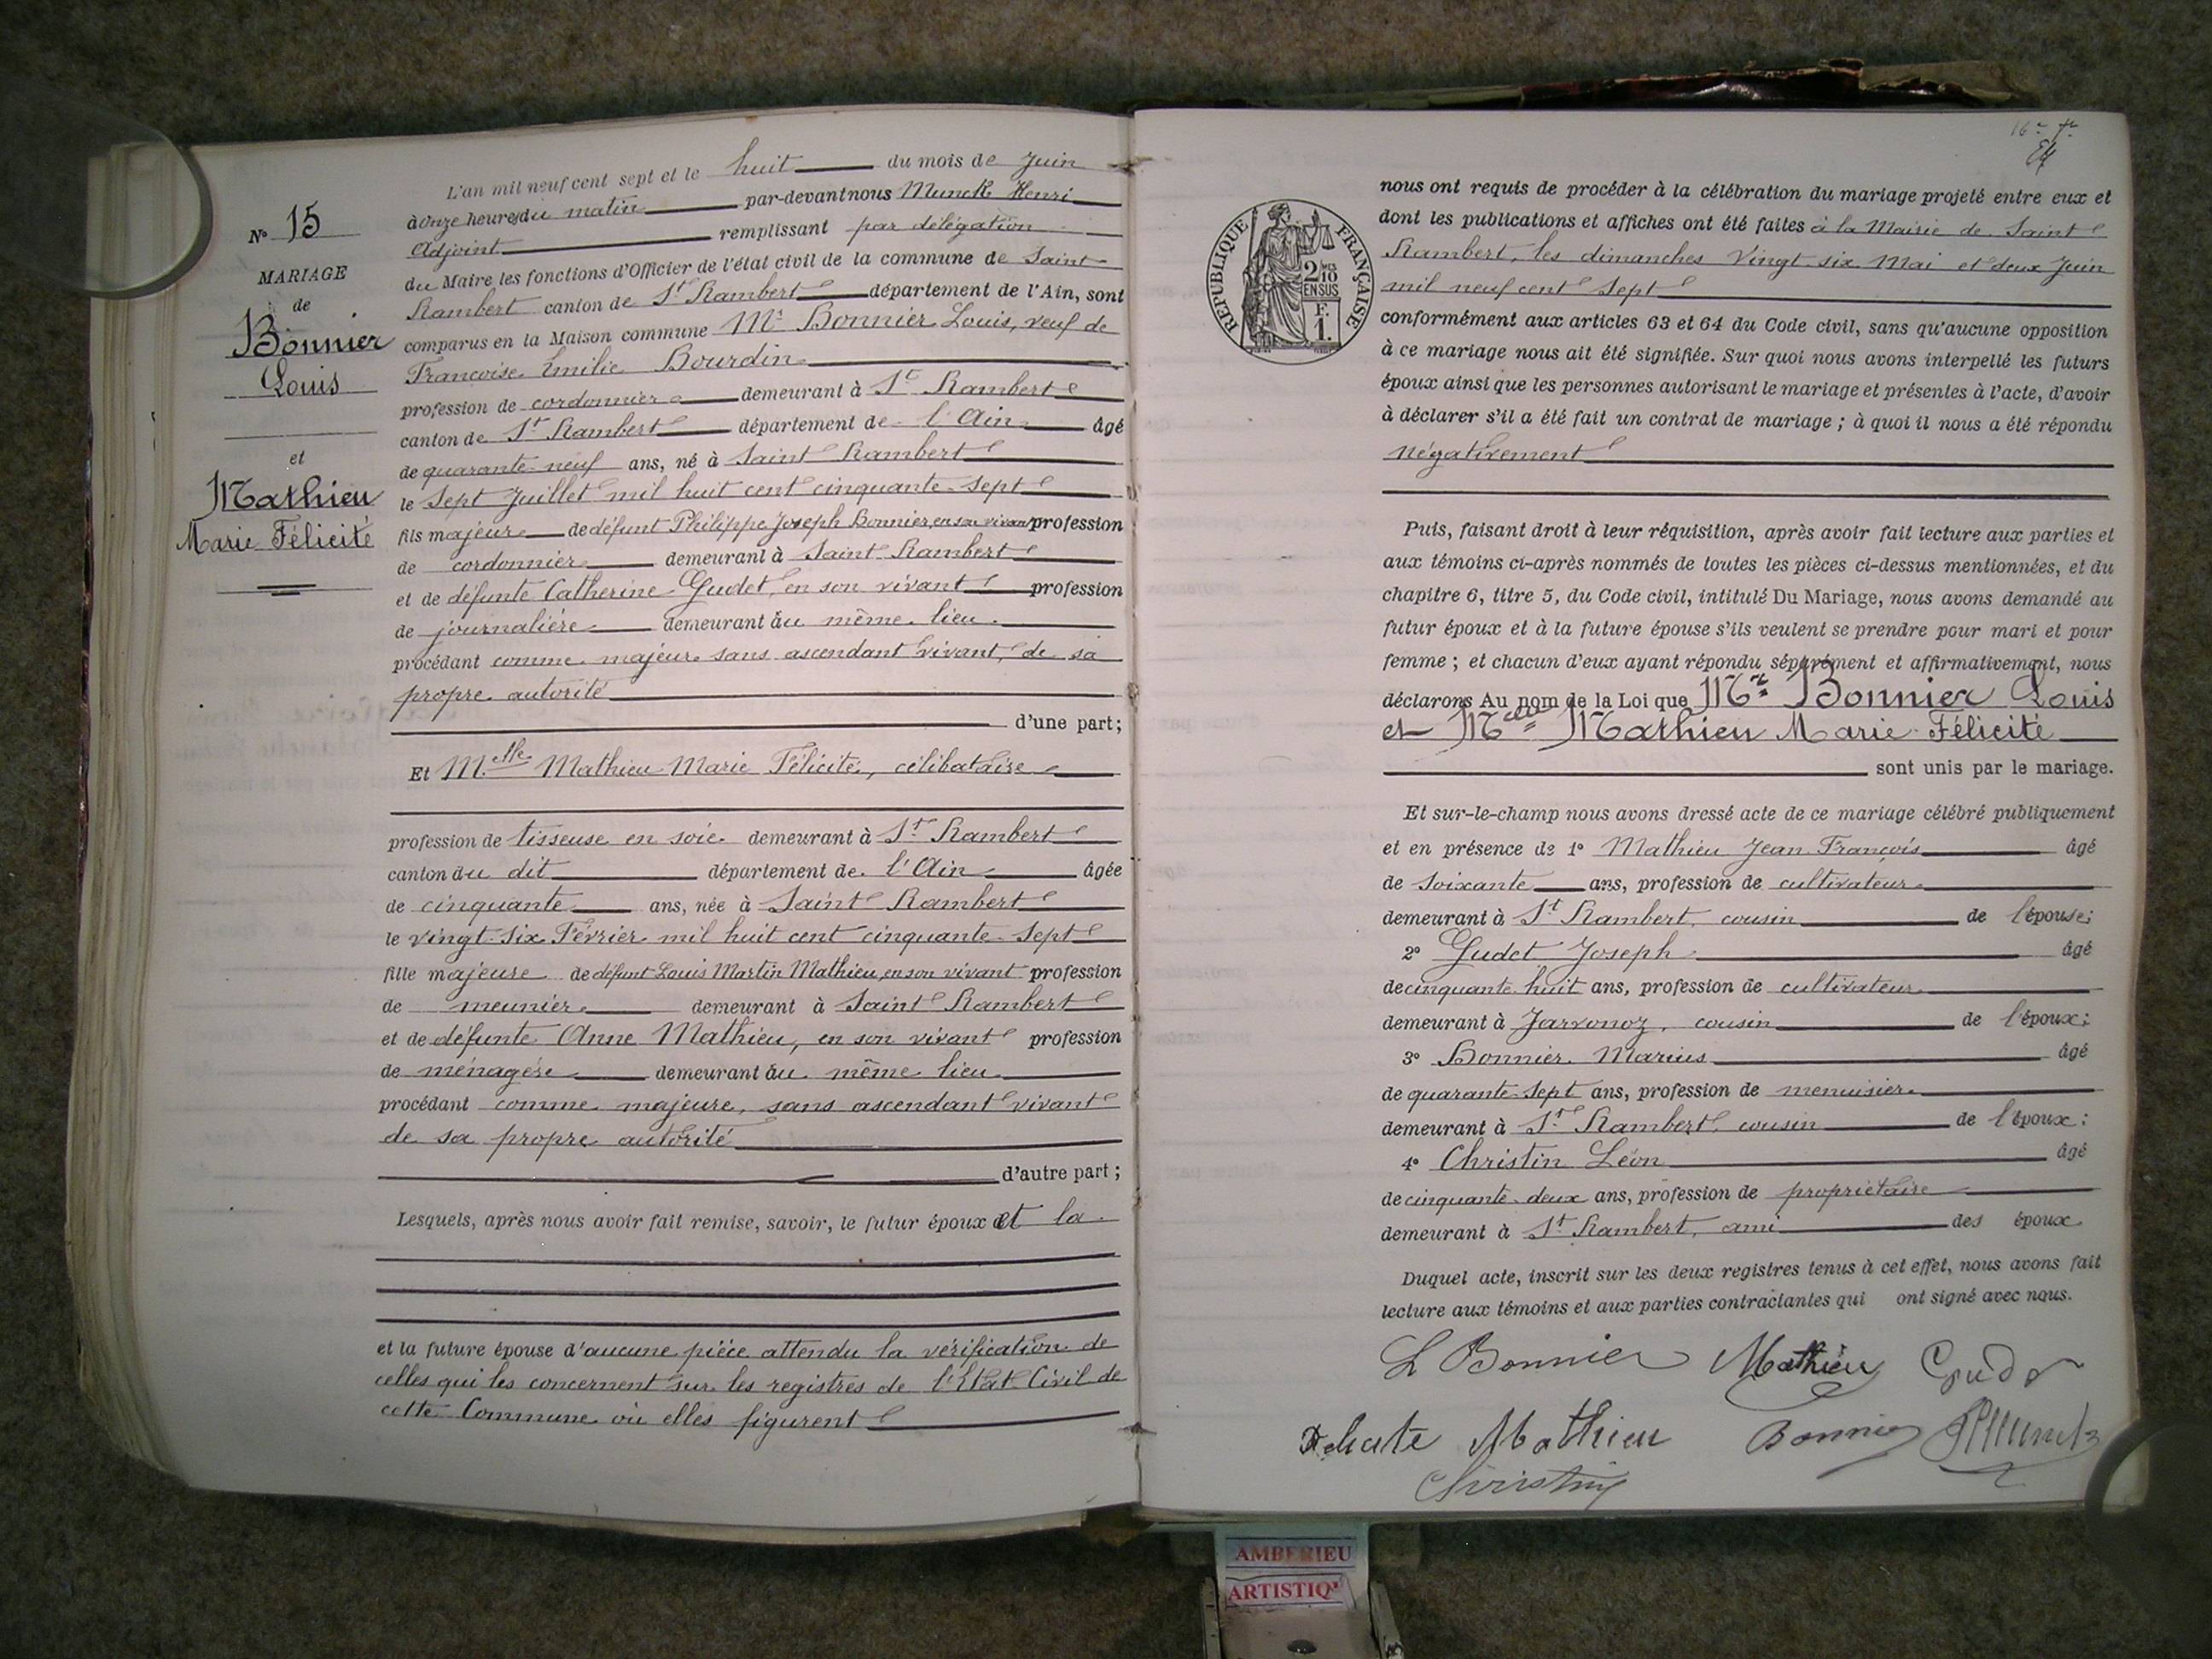 N° 15
MARIAGE
de
Bonnier
Louis
et
Mathieu
Marie Félicité
L'an mil neuf cent sept et le huit du mois de Juin
à onze heures du matin par-devant nous Munck Henri
Adjoint remplissant par délégation
du Maire les fonctions d'Officier de l'état civil de la commune de Saint
Rambert canton de St Rambert département de l'Ain, sont
comparus en la Maison commune Mr Bonnier Louis, veuf de
Françoise Emilie Bourdin
profession de cordonnier demeurant à St Rambert
canton de St Rambert département de l'Ain âgé
de quarante-neuf ans, né à Saint Rambert
le Sept Juillet mil huit cent cinquante-sept
fils majeur de défunt Philippe Joseph Bonnier, en son vivant profession
de cordonnier demeurant à Saint Rambert
et de défunte Catherine Gudet, en son vivant profession
de journalière demeurant au même lieu
procédant comme majeur sans ascendant vivant, de sa
propre autorité
d'une part;
Et Melle Mathieu Marie Félicité, célibataire
profession de tisseuse en soie demeurant à St Rambert
canton du dit département de l'Ain âgée
de cinquante ans, née à Saint Rambert
le vingt-six Février mil huit cent cinquante-sept
fille majeure de défunt Louis Martin Mathieu, en son vivant profession
de meunier demeurant à Saint Rambert
et de défunte Anne Mathieu, en son vivant profession
de ménagère demeurant au même lieu
procédant comme majeure, sans ascendant vivant
de sa propre autorité
d'autre part;
Lesquels, après nous avoir fait remise, savoir, le futur époux et la
et la future épouse d'aucune pièce attendu la vérification de
celles qui les concernent sur les registres de l'Etat-Civil de
cette Commune où elles figurent
RÉPUBLIQUE FRANÇAISE
2/10
EN SUS
F.
1.
nous ont requis de procéder à la célébration du mariage projeté entre eux et
dont les publications et affiches ont été faites à la Mairie de Saint
Rambert, les dimanches Vingt-six Mai et deux Juin
mil neuf cent Sept
conformément aux articles 63 et 64 du Code civil, sans qu'aucune opposition
à ce mariage nous ait été signifiée. Sur quoi nous avons interpellé les futurs
époux ainsi que les personnes autorisant le mariage et présentes à l'acte, d'avoir
à déclarer s'il a été fait un contrat de mariage; à quoi il nous a été répondu
négativement
Puis, faisant droit à leur réquisition, après avoir fait lecture aux parties et
aux témoins ci-après nommés de toutes les pièces ci-dessus mentionnées, et du
chapitre 6, titre 5, du Code civil, intitulé Du Mariage, nous avons demandé au
futur époux et à la future épouse s'ils veulent se prendre pour mari et pour
femme; et chacun d'eux ayant répondu séparément et affirmativement, nous
déclarons Au nom de la Loi que Mr Bonnier Louis
et Melle Mathieu Marie Félicité
sont unis par le mariage.
Et sur-le-champ nous avons dressé acte de ce mariage célébré publiquement
et en présence de 1° Mathieu Jean François âgé
de soixante ans, profession de cultivateur
demeurant à St Rambert, cousin de l'épouse;
2° Gudet Joseph âgé
de cinquante huit ans, profession de cultivateur
demeurant à Javornoz, cousin de l'époux;
3° Bonnier Marius âgé
de quarante-sept ans, profession de menuisier
demeurant à St Rambert, cousin de l'époux;
4° Christin Léon âgé
de cinquante-deux ans, profession de propriétaire
demeurant à St Rambert, ami des époux
Duquel acte, inscrit sur les deux registres tenus à cet effet, nous avons fait
lecture aux témoins et aux parties contractantes qui ont signé avec nous.
L Bonnier Mathieu
Mathieu Bonnier HMunck
Christin
AMBERIEU
ARTISTIQ